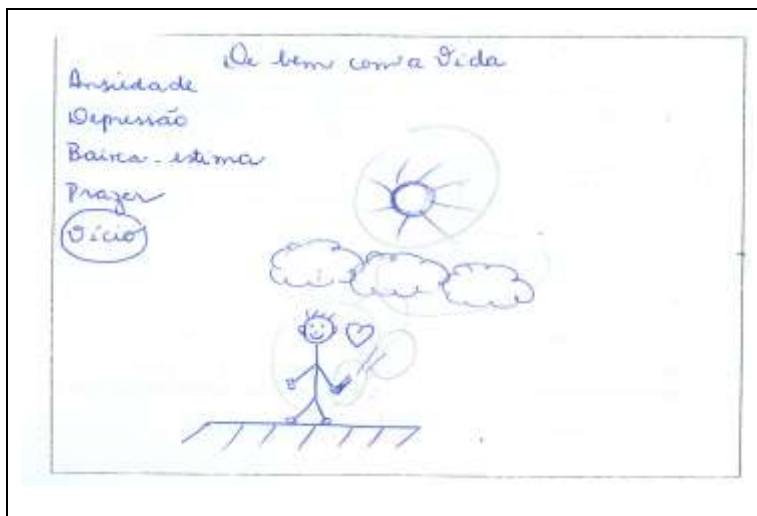 De bem com a Vida
Ansiedade
Depressão
Baixa-estima
Prazer
Vício